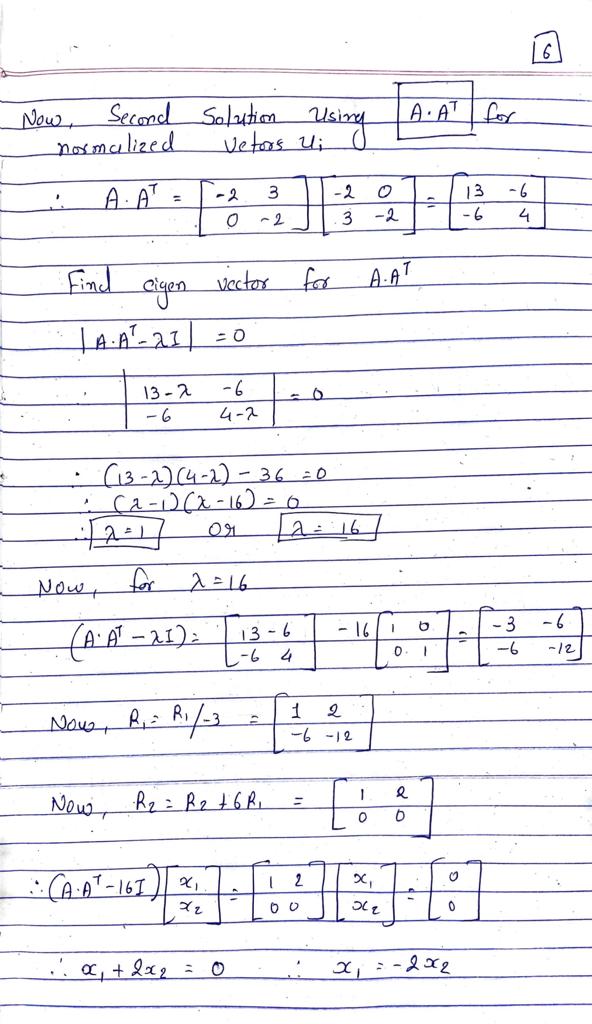 6
Now, Second Solution Using A·Aᵀ for
normalized Vetors uᵢ
∴ A·Aᵀ = [-2 3; 0 -2] [-2 0; 3 -2] = [13 -6; -6 4]
Find eigen vector for A·Aᵀ
|A·Aᵀ - λI| = 0
|13-λ -6; -6 4-λ| = 0
∴ (13-λ)(4-λ) - 36 = 0
∴ (λ-1)(λ-16) = 0
∴ λ=1 or λ = 16
Now, for λ=16
(A·Aᵀ - λI) = [13 -6; -6 4] - 16 [1 0; 0 1] = [-3 -6; -6 -12]
Now, R₁ = R₁/-3 = [1 2; -6 -12]
Now, R₂ = R₂ + 6R₁ = [1 2; 0 0]
∴ (A·Aᵀ - 16I) [x₁; x₂] = [1 2; 0 0] [x₁; x₂] = [0; 0]
∴ x₁ + 2x₂ = 0 ∴ x₁ = -2x₂